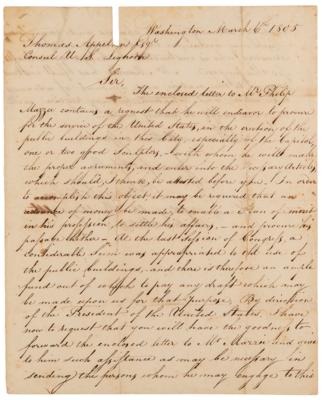 Washington March 6th 1805
Thomas Appleton Esqr.
Consul U.S. Leghorn
Sir,
The enclosed letter to Mr. Philip
Mazzei contains a request that he will endeavor to procure
for the service of the United States, in the erection of the
public buildings in this City, especially of the Capitol,
one or two good Sculptors, with whom he will make
the proper agreements, and enter into the
which should, I think, be attested before you. In order
to accomplish this object it may be required that an
advance of money be made, to enable a man of merit
in his profession, to settle his affairs, and procure his
passage hither. At the last Session of Congress, a
considerable Sum was appropriated to the use of
the public buildings, and there is therefore an ample
fund out of which to pay any draft which may
be made upon us for that purpose. By direction
of the President of the United States, I have
now to request that you will have the goodness to
forward the enclosed letter to Mr. Mazzei and give
to him such assistance as may be necessary in
sending the persons whom he may engage to this